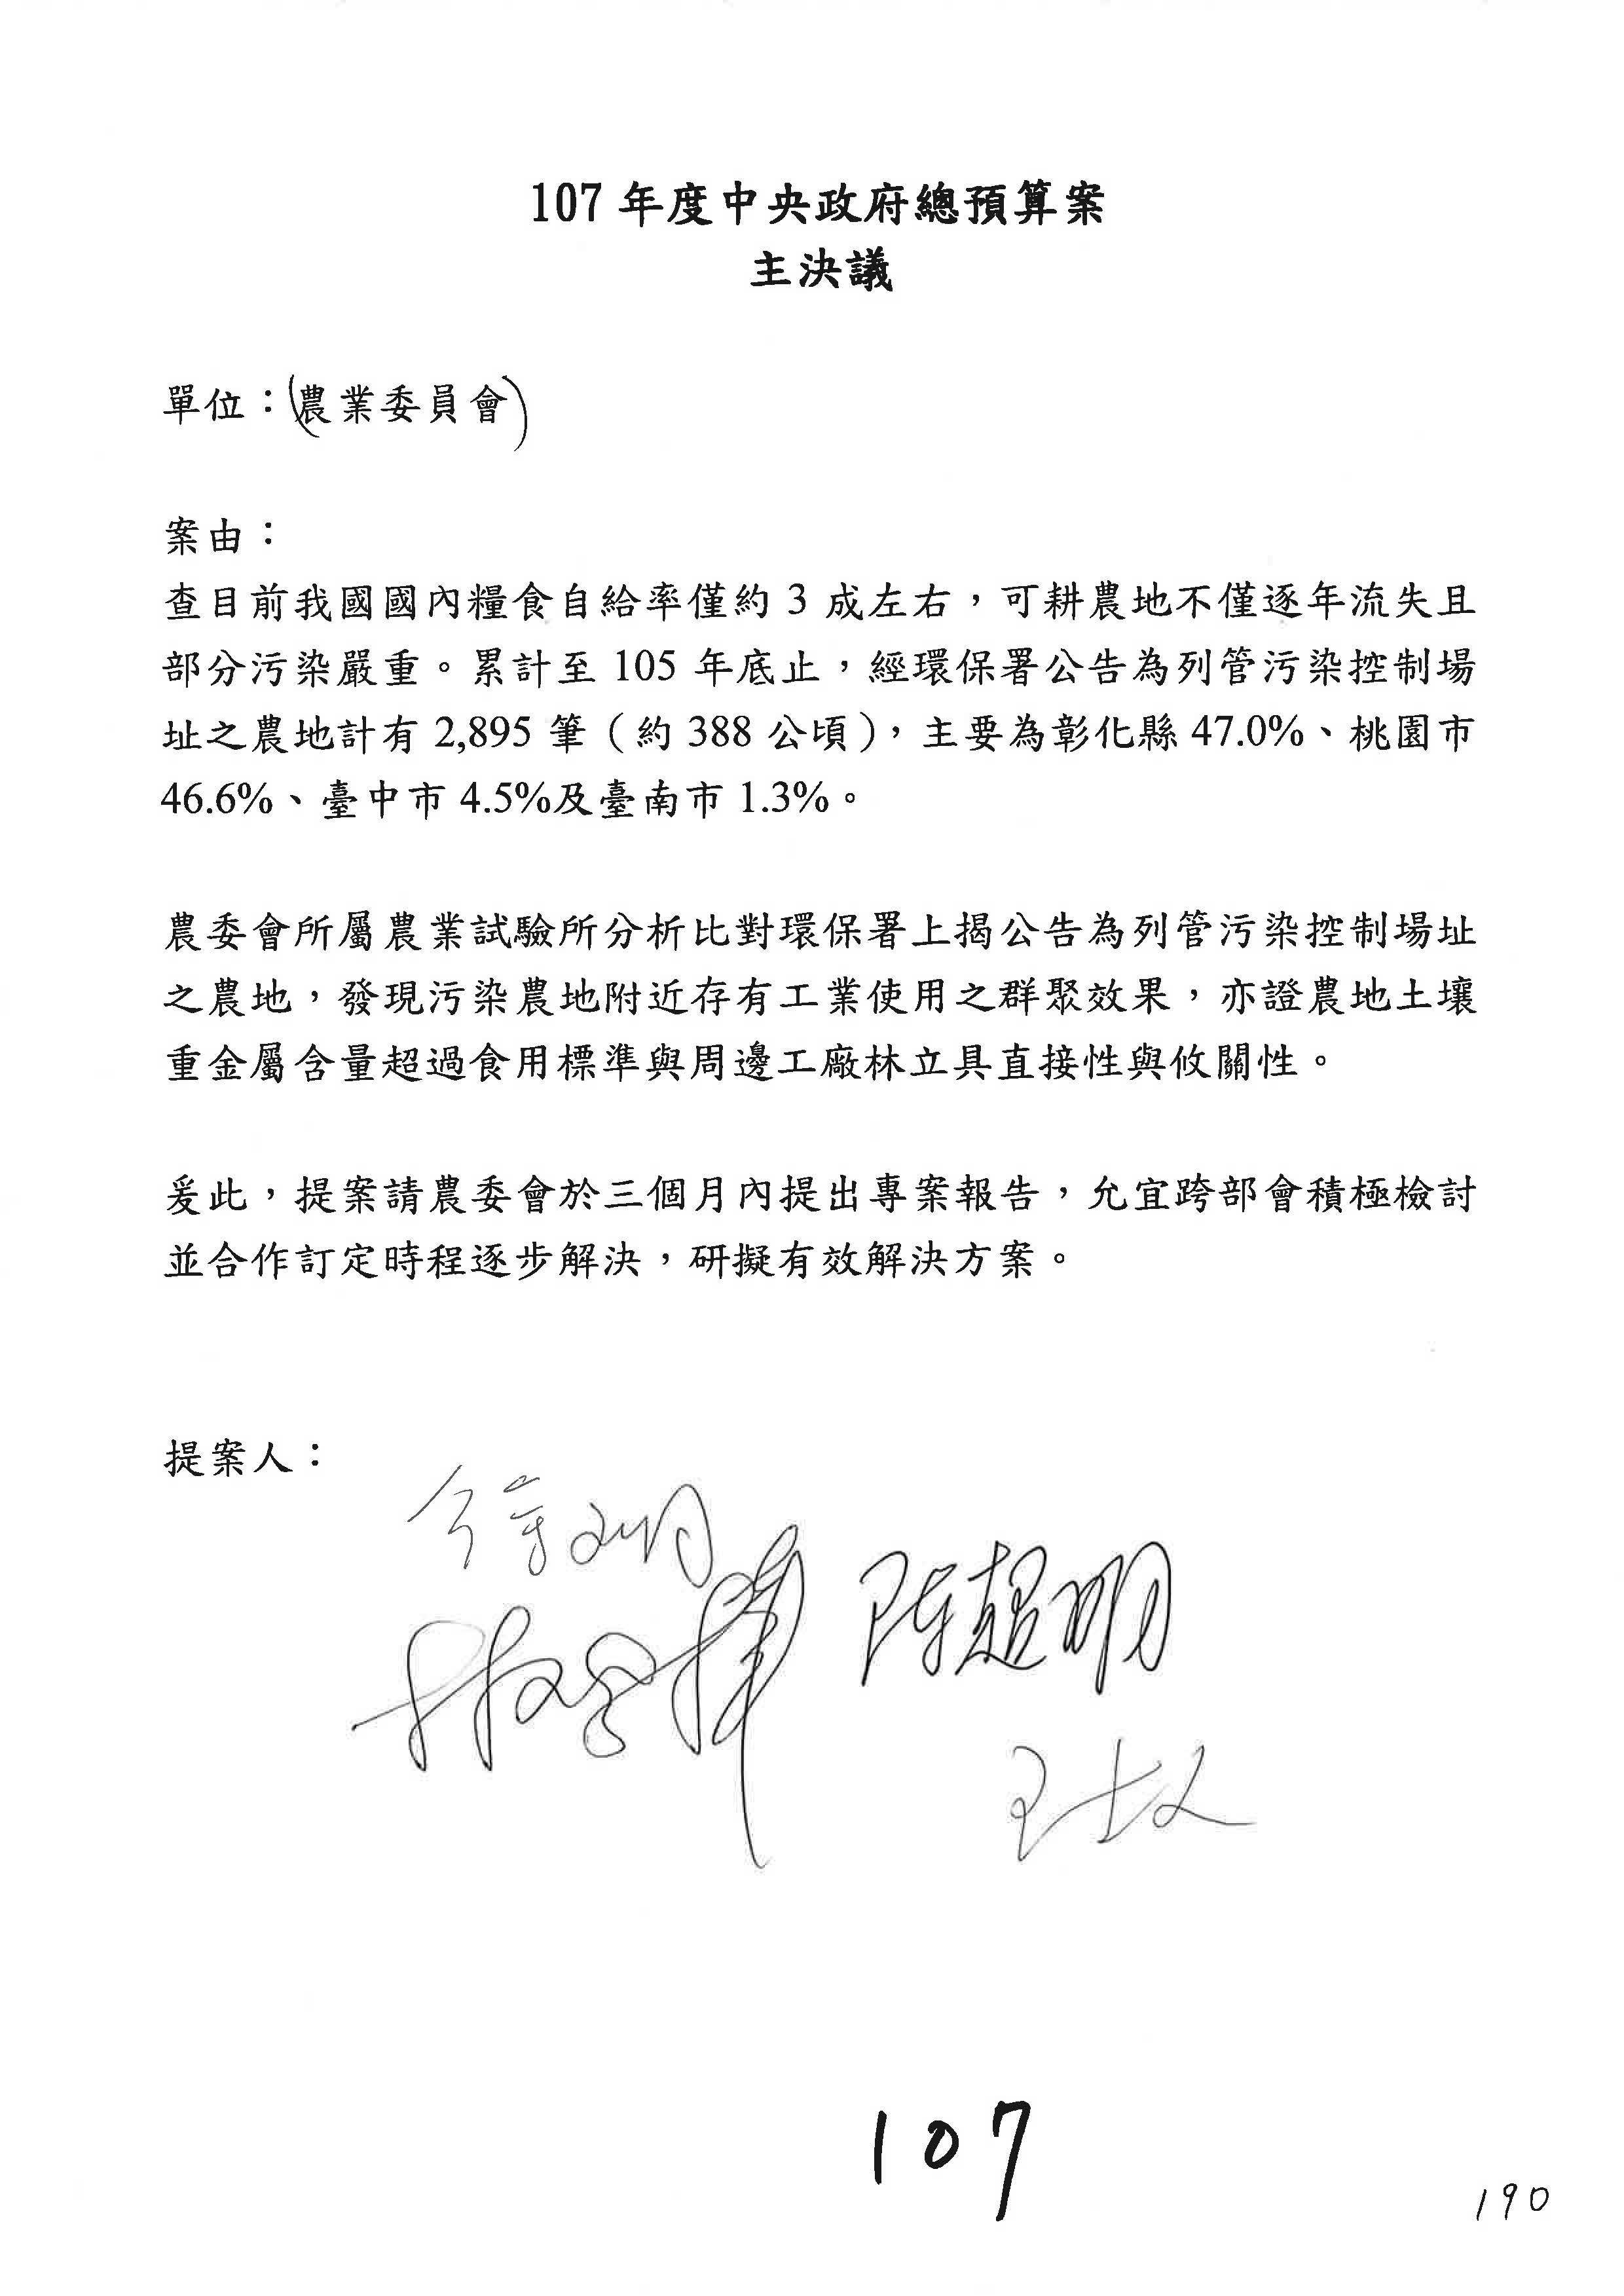 107 年度中央政府總預算案
主決議
單位：(農業委員會)
案由：
查目前我國國內糧食自給率僅約 3 成左右，可耕農地不僅逐年流失且
部分污染嚴重。累計至 105 年底止，經環保署公告為列管污染控制場
址之農地計有 2,895 筆（約 388 公頃），主要為彰化縣 47.0%、桃園市
46.6%、臺中市 4.5%及臺南市 1.3%。
農委會所屬農業試驗所分析比對環保署上揭公告為列管污染控制場址
之農地，發現污染農地附近存有工業使用之群聚效果，亦證農地土壤
重金屬含量超過食用標準與周邊工廠林立具直接性與攸關性。
爰此，提案請農委會於三個月內提出專案報告，允宜跨部會積極檢討
並合作訂定時程逐步解決，研擬有效解決方案。
提案人：
陳超明
107
190